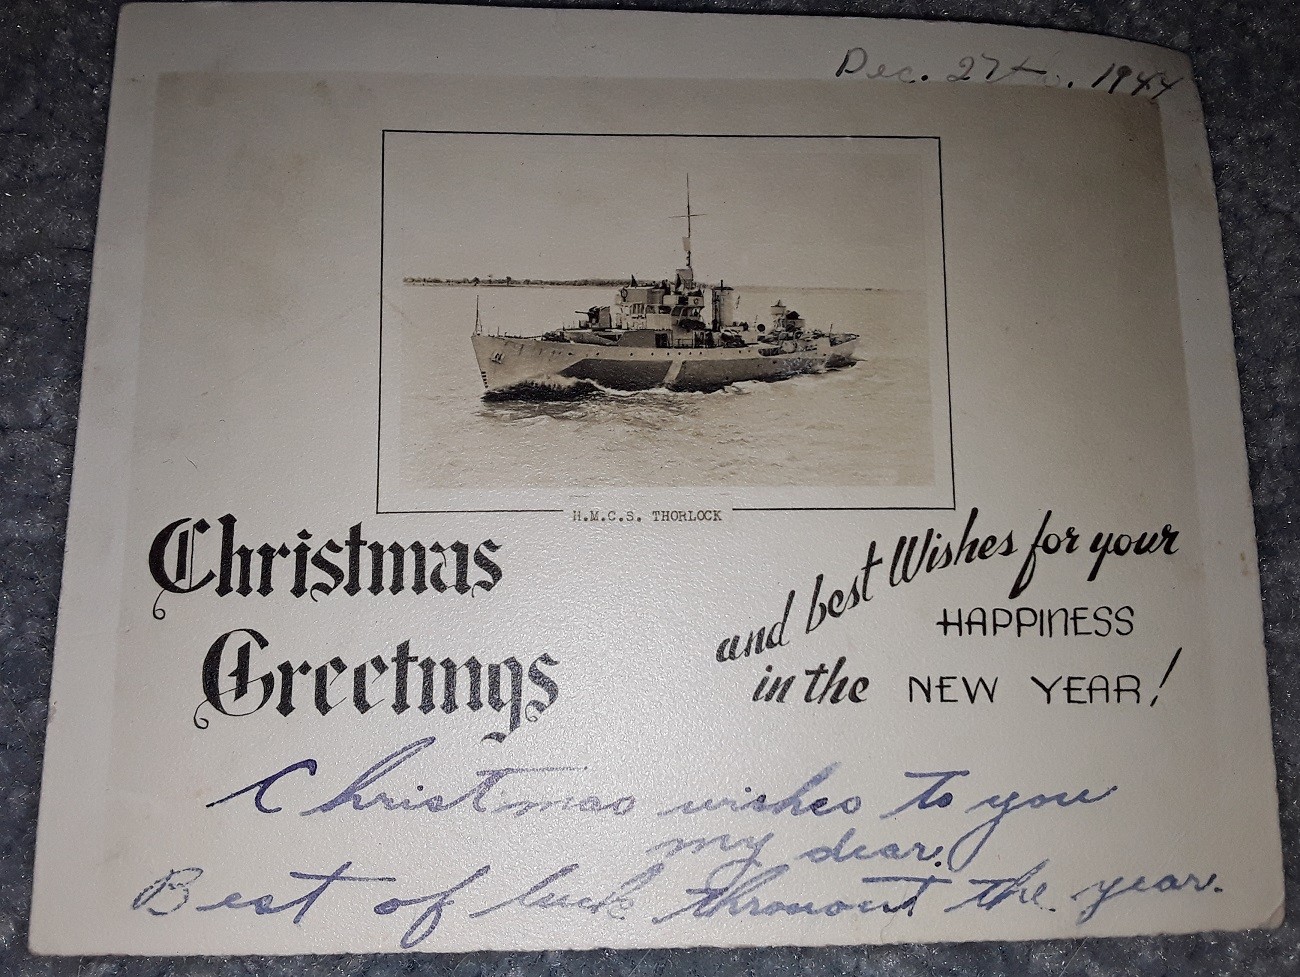 Dec. 27th. 1944
H.M.C.S. THORLOCK
Christmas
Greetings
and best Wishes for your
HAPPINESS
in the NEW YEAR!
Christmas wishes to you
my dear.
Best of luck thronout the year.